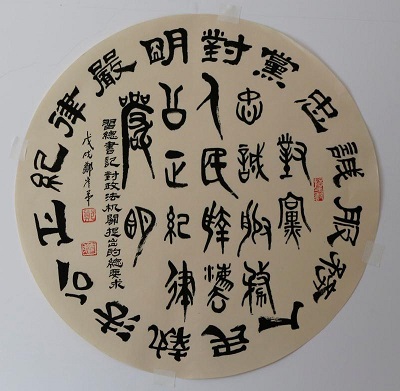 對黨忠誠服務人民執法公正紀律嚴明
對黨
忠誠服務
人民執灋
公正紀律
嚴明
習總書記對政法机關提出的總要求
戊戌鄭